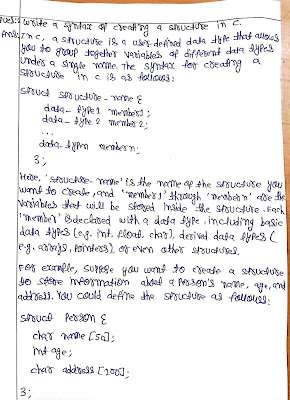 Ques: Write a syntax of creating a structure in C.
Ans: In C, a structure is a user-defined data type that allows
you to group together variables of different data types
under a single name. The syntax for creating a
structure in C is as follows:
struct structure-name {
data-type1 member1;
data-type2 member2;
...
data-typen membern;
};
Here, 'structure-name' is the name of the structure you
want to create, and 'member1' through 'membern' are the
variables that will be stored inside the structure. Each
'member' is declared with a data type, including basic
data types (e.g. int, float, char), derived data types (
e.g. arrays, pointers), or even other structures.
For example, suppose you want to create a structure
to store information about a person's name, age, and
address. You could define the structure as follows:
struct Person {
char name [50];
int age;
char address [100];
};